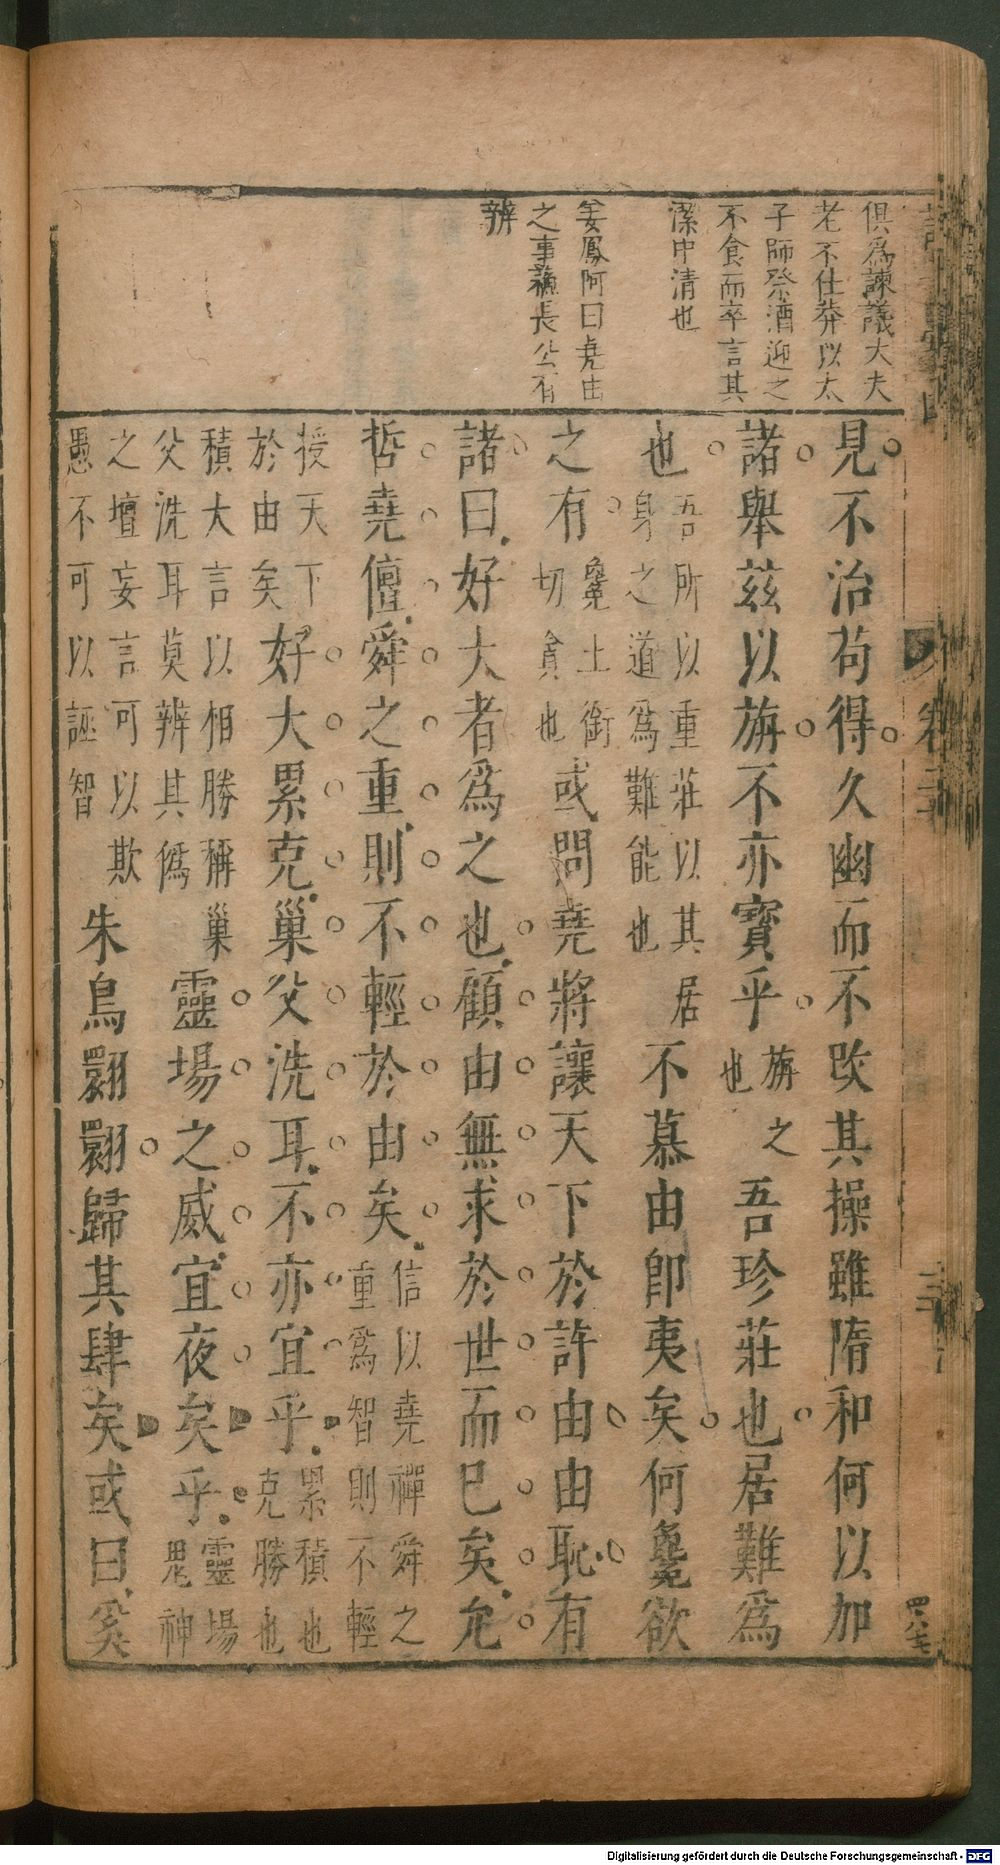 俱爲諫議大夫
老不仕莽以太
子師祭酒迎之
不食而卒言其
潔中清也
姜鳳阿曰堯由
之事蘓長公有
辨
見不治苟得久幽而不改其操雖隋和何以加
諸舉茲以旃不亦寶乎
旃之
也
吾珍莊也居難爲
也
吾所以重莊以其居
身之道爲難能也
不慕由卽夷矣何毚欲
之有
毚土銜
切貪也
或問堯將讓天下於許由由恥有
諸曰好大者爲之也顧由無求於世而已矣允
哲堯儃舜之重則不輕於由矣
信以堯禪舜之
重爲智則不輕
授天下
於由矣
好大累克巢父洗耳不亦宜乎
累積也
克勝也
積大言以相勝稱巢
父洗耳莫辨其僞
靈場之威宜夜矣乎
靈場
鬼神
之壇妄言可以欺
愚不可以誣智
朱鳥翾翾歸其肆矣或曰奚
卷三
Digitalisierung gefördert durch die Deutsche Forschungsgemeinschaft - DFG